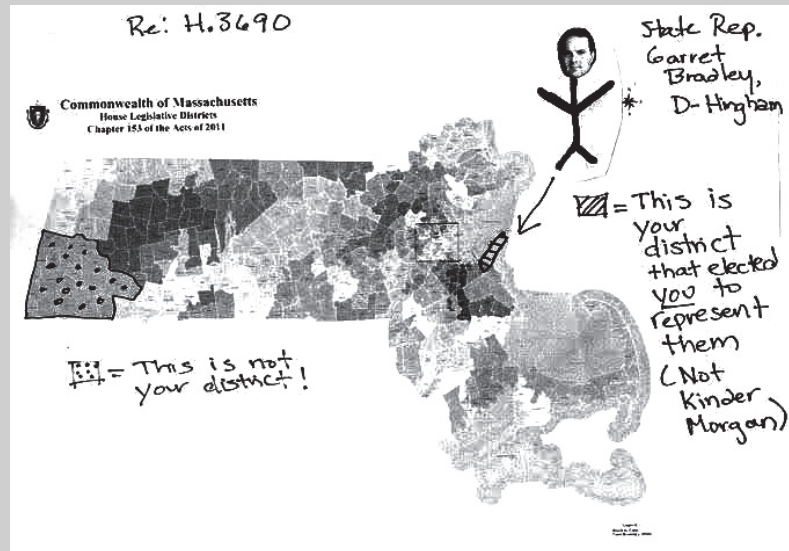 Re: H.3690
State Rep.
Garret
Bradley,
D-Hingham
Commonwealth of Massachusetts
House Legislative Districts
Chapter 153 of the Acts of 2011
= This is
your
district
that elected
you to
represent
them
(Not
Kinder
Morgan)
= This is not
your district!